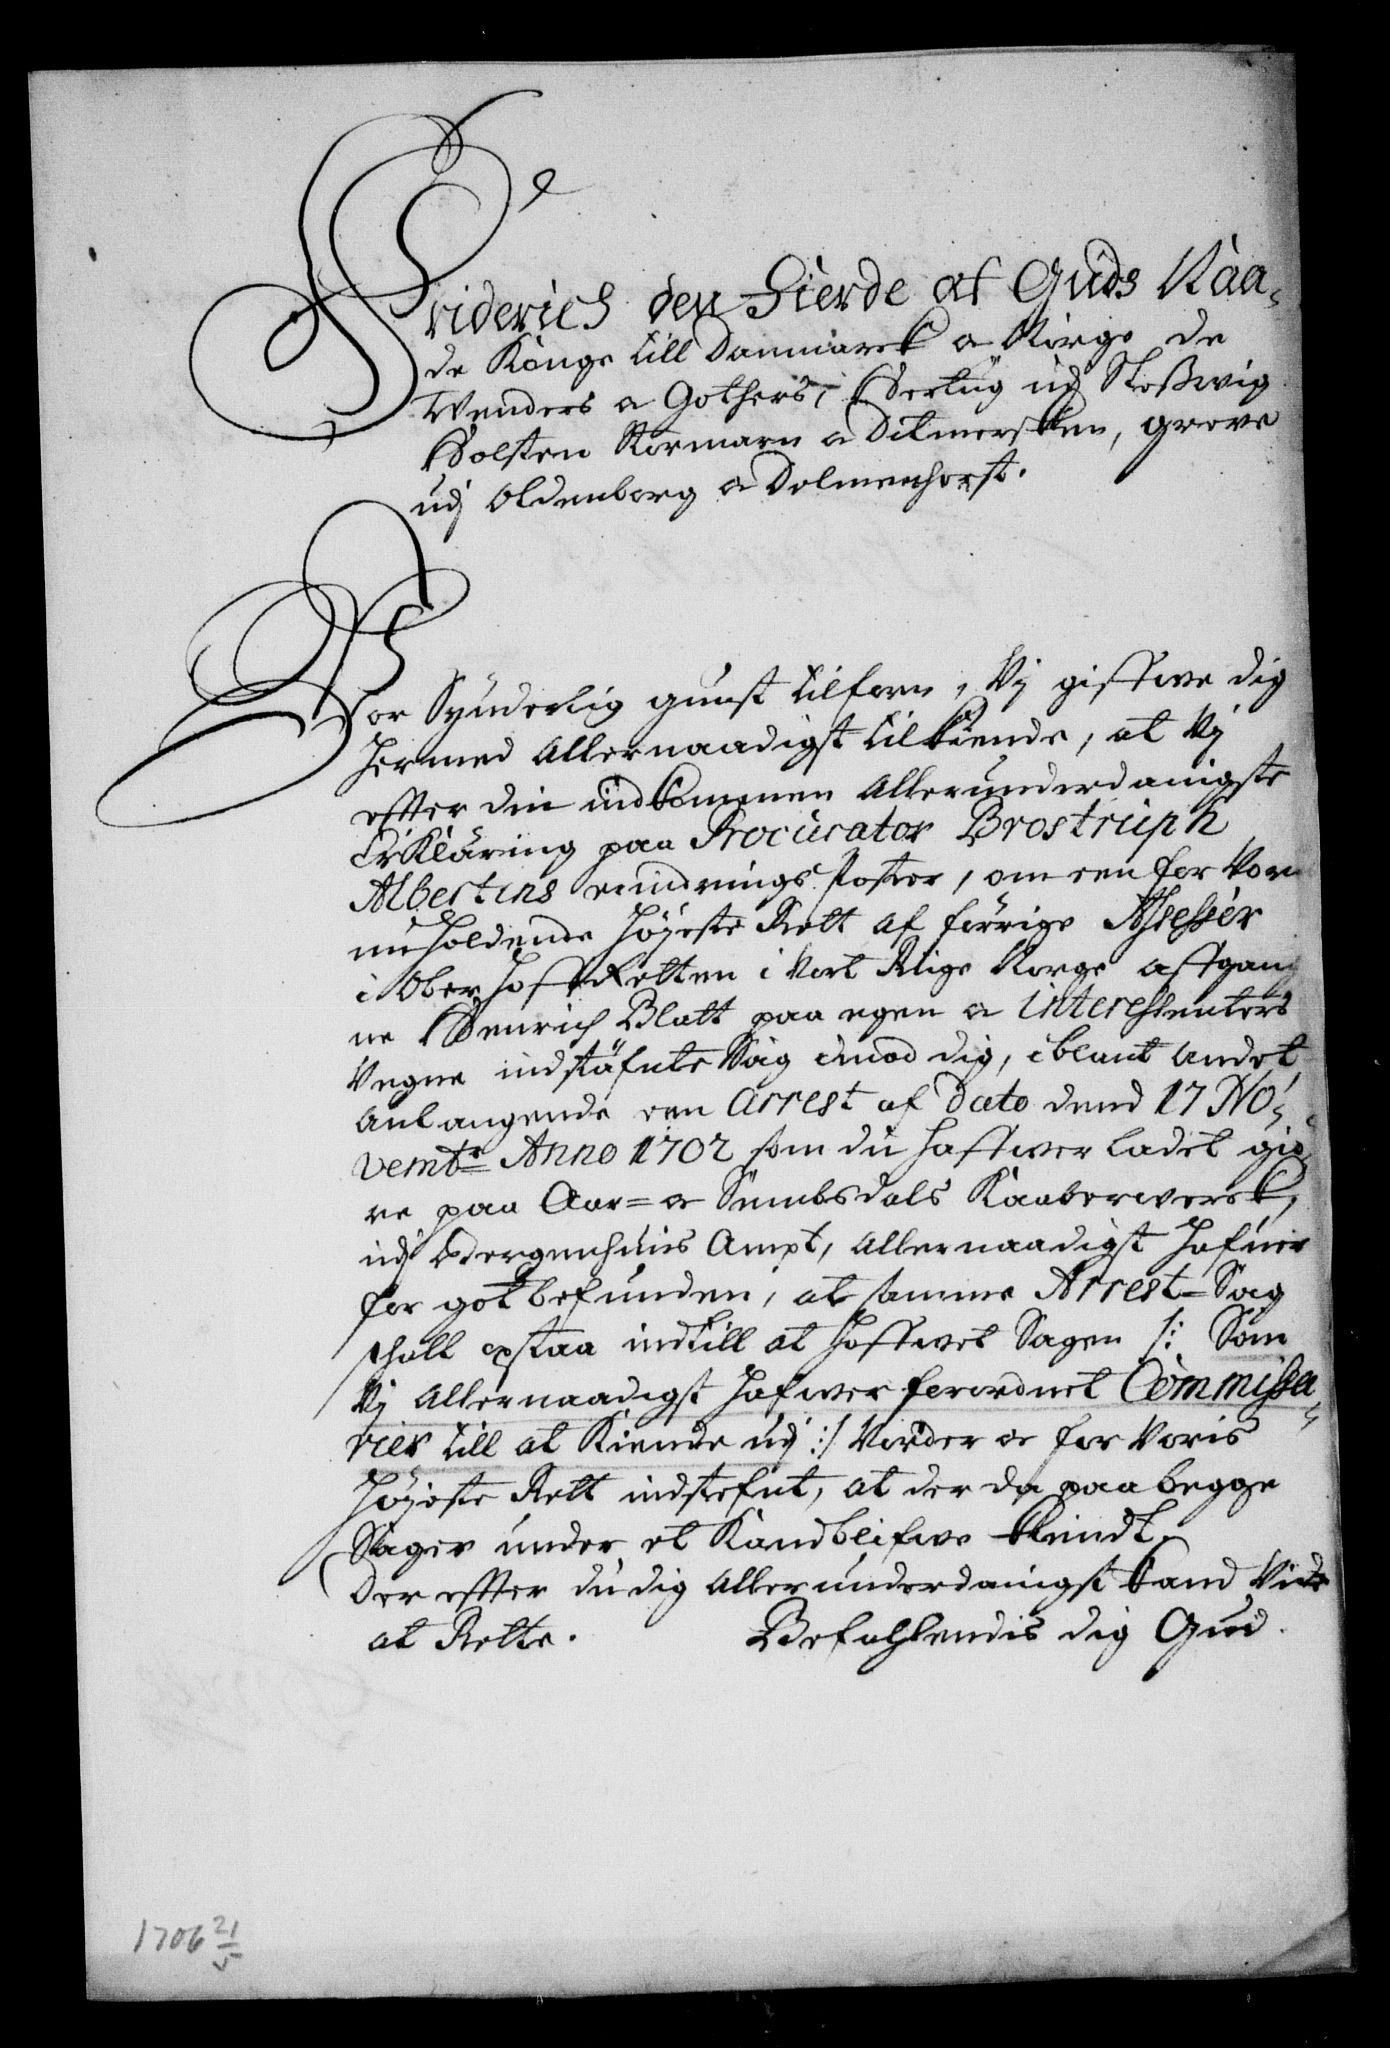 Friderich den Fierde af Guds Naa-
de Konge till Danmarck oc Norge de
Wenders oc Gothers, Hertug udj Sleßwig
Holsten Stormarn oc Ditmersken, Greve
udj Oldenborg oc Delmenhorst.
Vor Synderlig gunst tilforn, Vij gifswe dig
hermed Allernaadigst tilkiende, at Vij
effter din indkommen Allerunderdanigste
Erkläring paa Procurator Brostruph
Albertins erindrings Poster, om een for Vor
nu holdende Höjeste Rett af forrige Assessor
i Ober Hoff Retten i Vort Rige Norge affgang
ne Henrich Blatt paa egen oc interessenters
Vegne indstäfnte Sag imod dig, iblant Andet
Anlangende een Arrest af Dato dend 17 No-
vembr Anno 1702 som du haffwer ladet giö-
re paa Aar= oc Sembsdals Kaaberwerck,
udj Bergenhuus Ampt, Allernaadigst hafwer
for got befunden, at samme Arrest=Sag
schall opstaa indtill at hoffwet Sagen /: Som
Vj Allernaadigst hafwer forordnet Commissa-
rier till at Kiende udj :/ Vorder oc for Voris
Höjeste Rett indstefnt, at der da paa begge
Sager under et Kand blifwe Kiendt.
Der effter du dig Allerunderdanigst kand Vide
at Rette. Befahlendis dig Gud.
1706 21/5